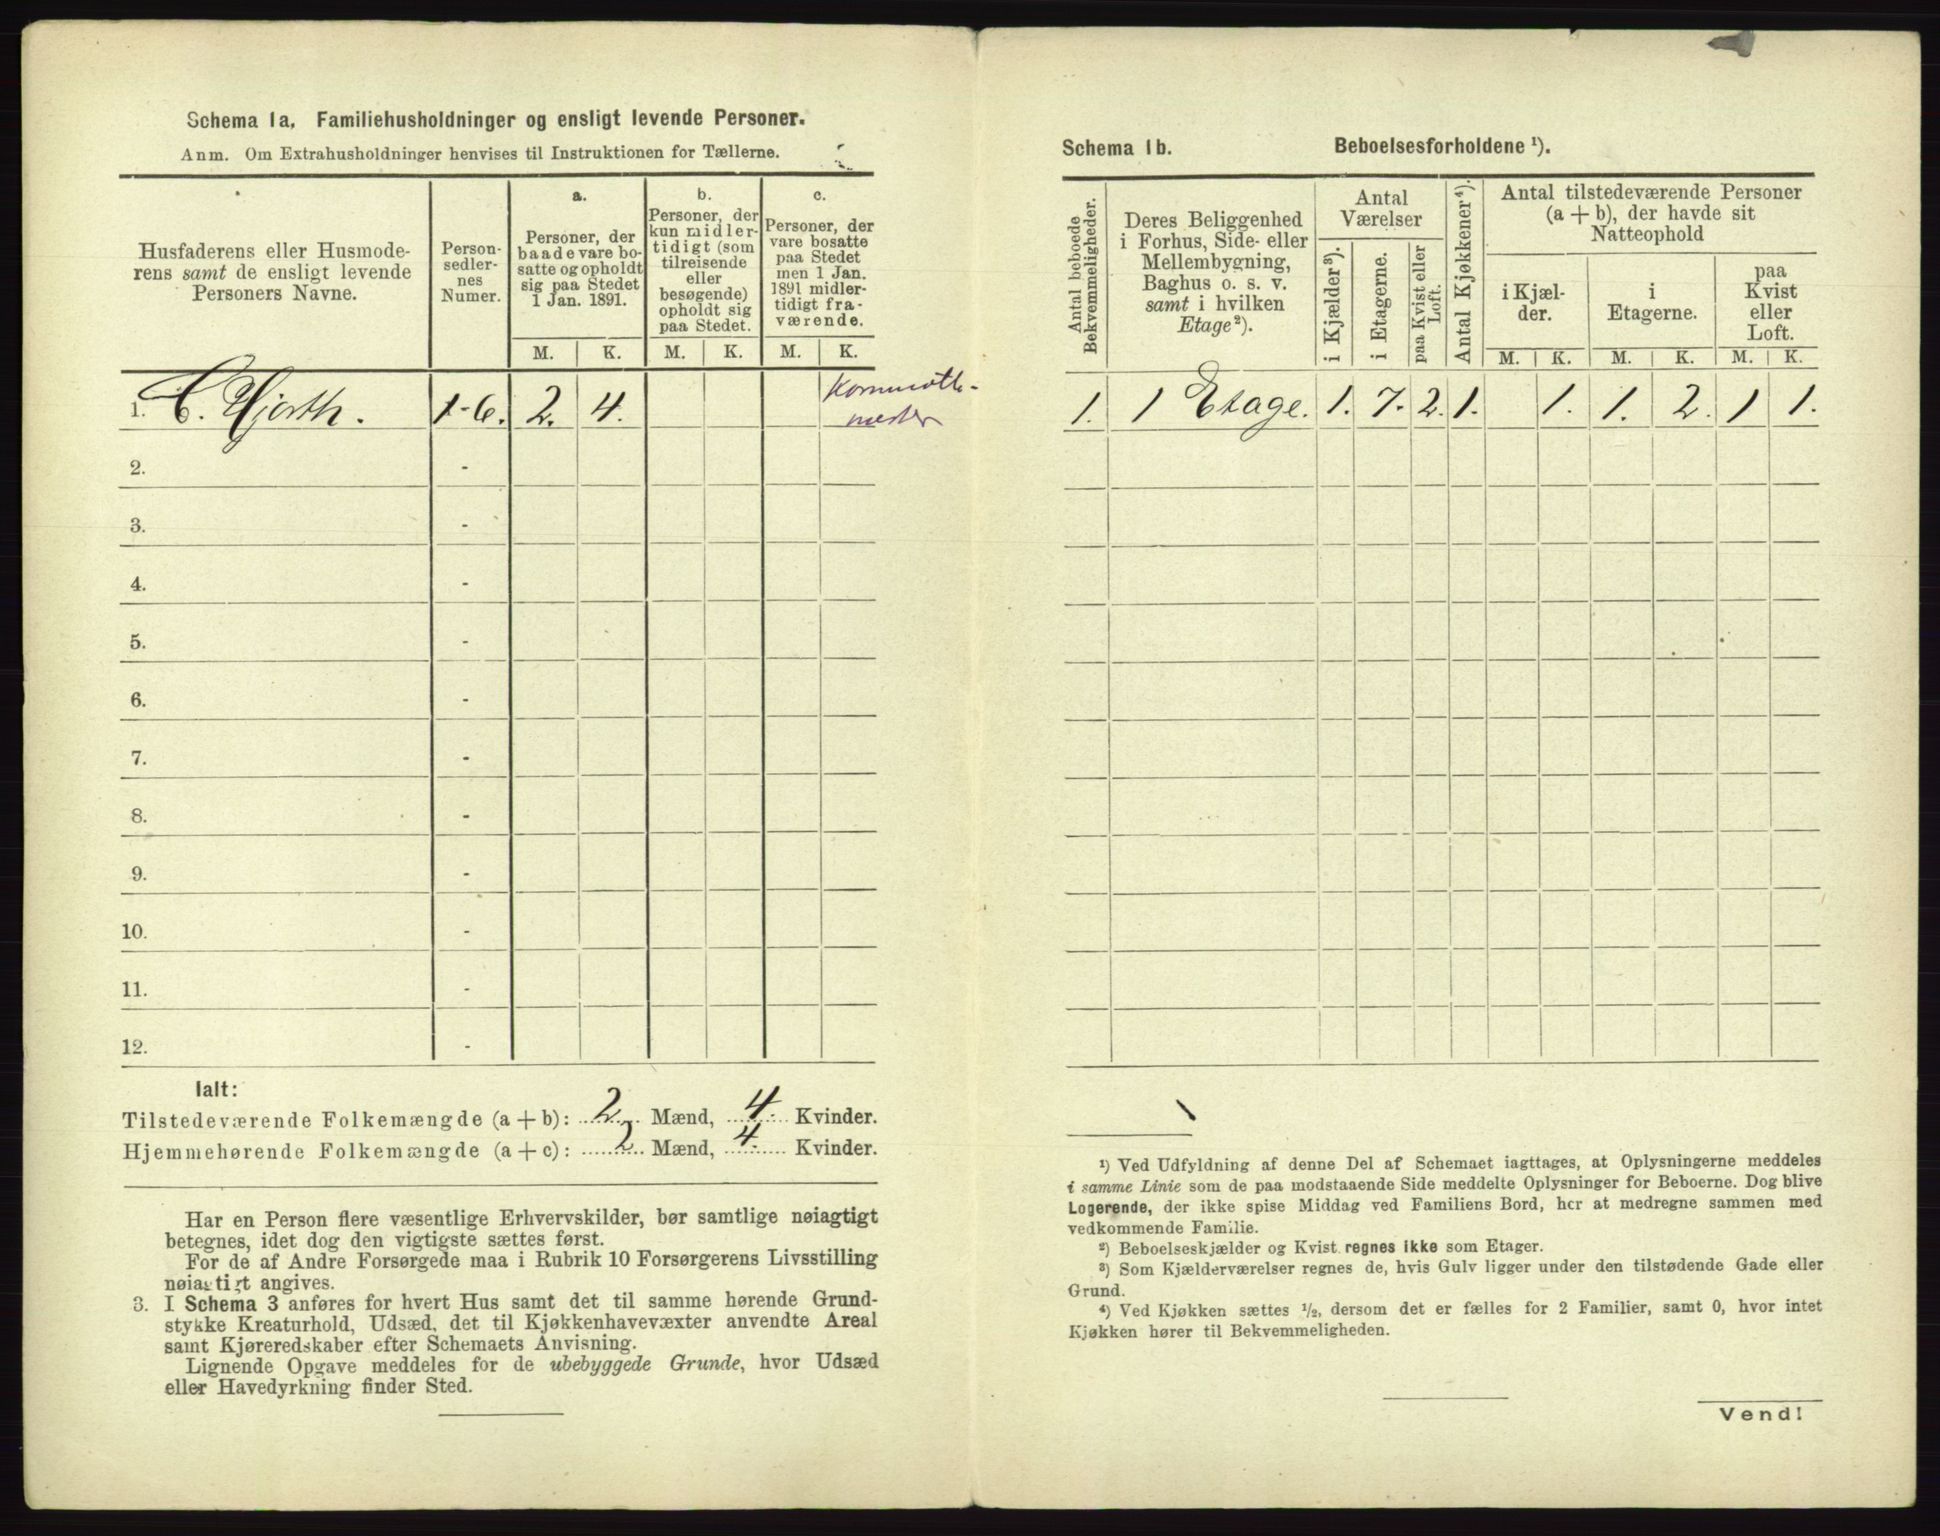 Schema 1a. Familiehusholdninger og ensligt levende Personer.
Anm. Om Extrahusholdninger henvises til Instruktionen for Tællerne.
Husfaderens eller Husmode-
rens samt de ensligt levende
Personers Navne.
Person-
sedler-
nes
Numer.
a.
Personer, der
baade vare bo-
satte og opholdt
sig paa Stedet
1 Jan. 1891.
b.
Personer, der
kun midler-
tidigt (som
tilreisende
eller
besøgende)
opholdt sig
paa Stedet.
c.
Personer, der
vare bosatte
paa Stedet
men 1 Jan.
1891 midler-
tidigt fra-
værende.
M. K. M. K. M. K.
1. C. Hjorth. 1-6. 2. 4.
2. -
3. -
4. -
5. -
6. -
7. -
8. -
9. -
10. -
11. -
12. -
Ialt:
Tilstedeværende Folkemængde (a + b): 2 Mænd, 4. Kvinder.
Hjemmehørende Folkemængde (a + c): 2 Mænd, 4. Kvinder.
Har en Person flere væsentlige Erhvervskilder, bør samtlige nøiagtigt
betegnes, idet dog den vigtigste sættes først.
For de af Andre Forsørgede maa i Rubrik 10 Forsørgerens Livsstilling
nøiagtigt angives.
3. I Schema 3 anføres for hvert Hus samt det til samme hørende Grund-
stykke Kreaturhold, Udsæd, det til Kjøkkenhavevæxter anvendte Areal
samt Kjøreredskaber efter Schemaets Anvisning.
Lignende Opgave meddeles for de ubebyggede Grunde, hvor Udsæd
eller Havedyrkning finder Sted.
Schema 1b. Beboelsesforholdene ¹).
Antal beboede
Bekvemmeligheder.
Deres Beliggenhed
i Forhus, Side- eller
Mellembygning,
Baghus o. s. v.
samt i hvilken
Etage²).
Antal
Værelser
i Kjælder³).
i Etagerne.
paa Kvist eller
Loft.
Antal Kjøkkener⁴).
Antal tilstedeværende Personer
(a + b), der havde sit
Natteophold
i Kjæl-
der.
i
Etagerne.
paa
Kvist
eller
Loft.
M. K. M. K. M. K.
1. 1 Etage. 1. 7. 2. 1. 1. 1. 2. 1 1.
¹) Ved Udfyldning af denne Del af Schemaet iagttages, at Oplysningerne meddeles
i samme Linie som de paa modstaaende Side meddelte Oplysninger for Beboerne. Dog blive
Logerende, der ikke spise Middag ved Familiens Bord, her at medregne sammen med
vedkommende Familie.
²) Beboelseskjælder og Kvist regnes ikke som Etager.
³) Som Kjælderværelser regnes de, hvis Gulv ligger under den tilstødende Gade eller
Grund.
⁴) Ved Kjøkken sættes ½, dersom det er fælles for 2 Familier, samt 0, hvor intet
Kjøkken hører til Bekvemmeligheden.
Vend!